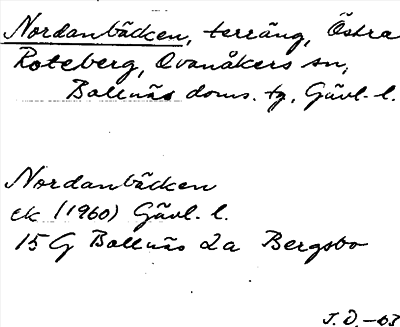 Nordanbäcken, terräng, Östra
Roteberg, Ovanåkers sn,
Bollnäs doms. tg, Gävl. l.
Nordanbäcken
ek (1960) Gävl. l.
15G Bollnäs 2a Bergsbo
J.D.-63